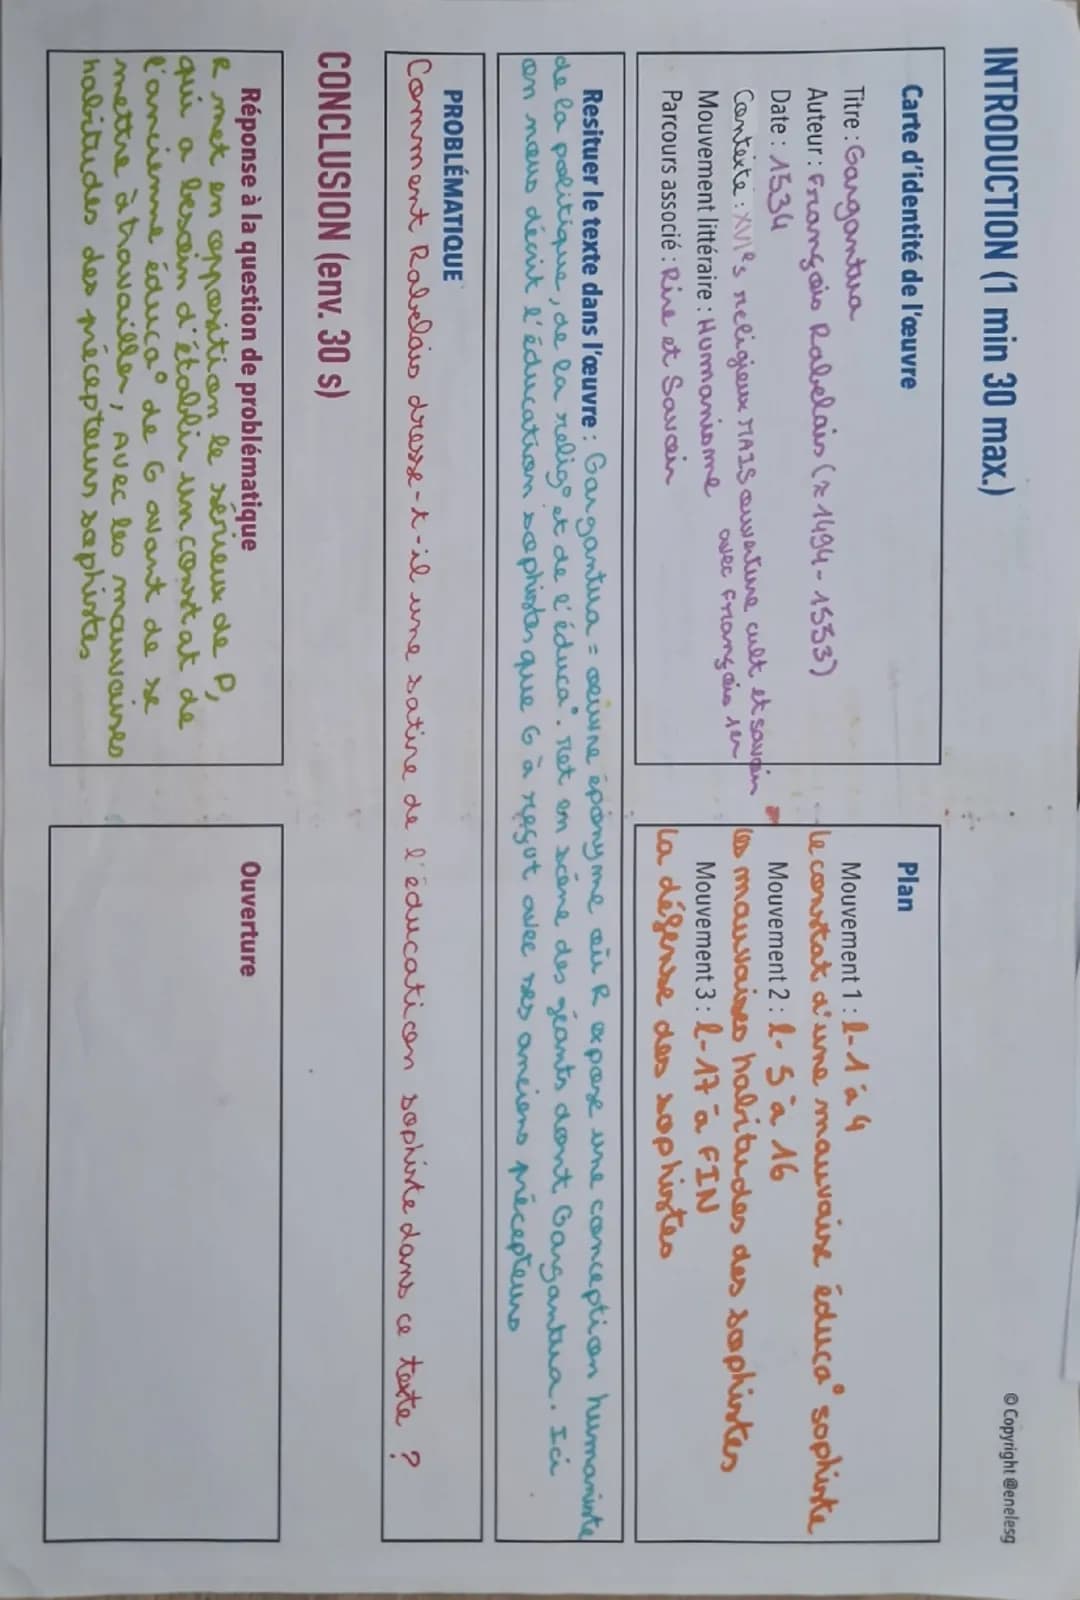 INTRODUCTION (1 min 30 max.)
© Copyright @enelesg
Carte d'identité de l'œuvre
Titre : Gargantua
Auteur : François Rabelais (≈ 1494-1553)
Date : 1534
Contexte : XVIe s religieux MAIS ouverture cult et savoir
avec François 1er
Mouvement littéraire : Humanisme
Parcours associé : Rire et Savoir
Plan
Mouvement 1 : l-1 à 4
Le constat d'une mauvaise éduca° sophiste
Mouvement 2 : l- 5 à 16
les mauvaises habitudes des sophistes
Mouvement 3 : l-17 à FIN
La défense des sophistes
Resituer le texte dans l'œuvre : Gargantua = œuvre éponyme où R expose une conception humaniste
de la politique, de la relig° et de l'éduca°. Met en scène des géants dont Gargantua. Ici
on nous décrit l'éducation sophistes que G à reçut avec ses anciens précepteurs
PROBLÉMATIQUE
Comment Rabelais dresse-t-il une satire de l'éducation sophiste dans ce texte ?
CONCLUSION (env. 30 s)
Réponse à la question de problématique
R met en opposition le sérieux de P,
qui a besoin d'établir un constat de
l'ancienne éduca° de G avant de se
mettre à travailler, AVEC les mauvaises
habitudes des précepteurs sophistes
Ouverture